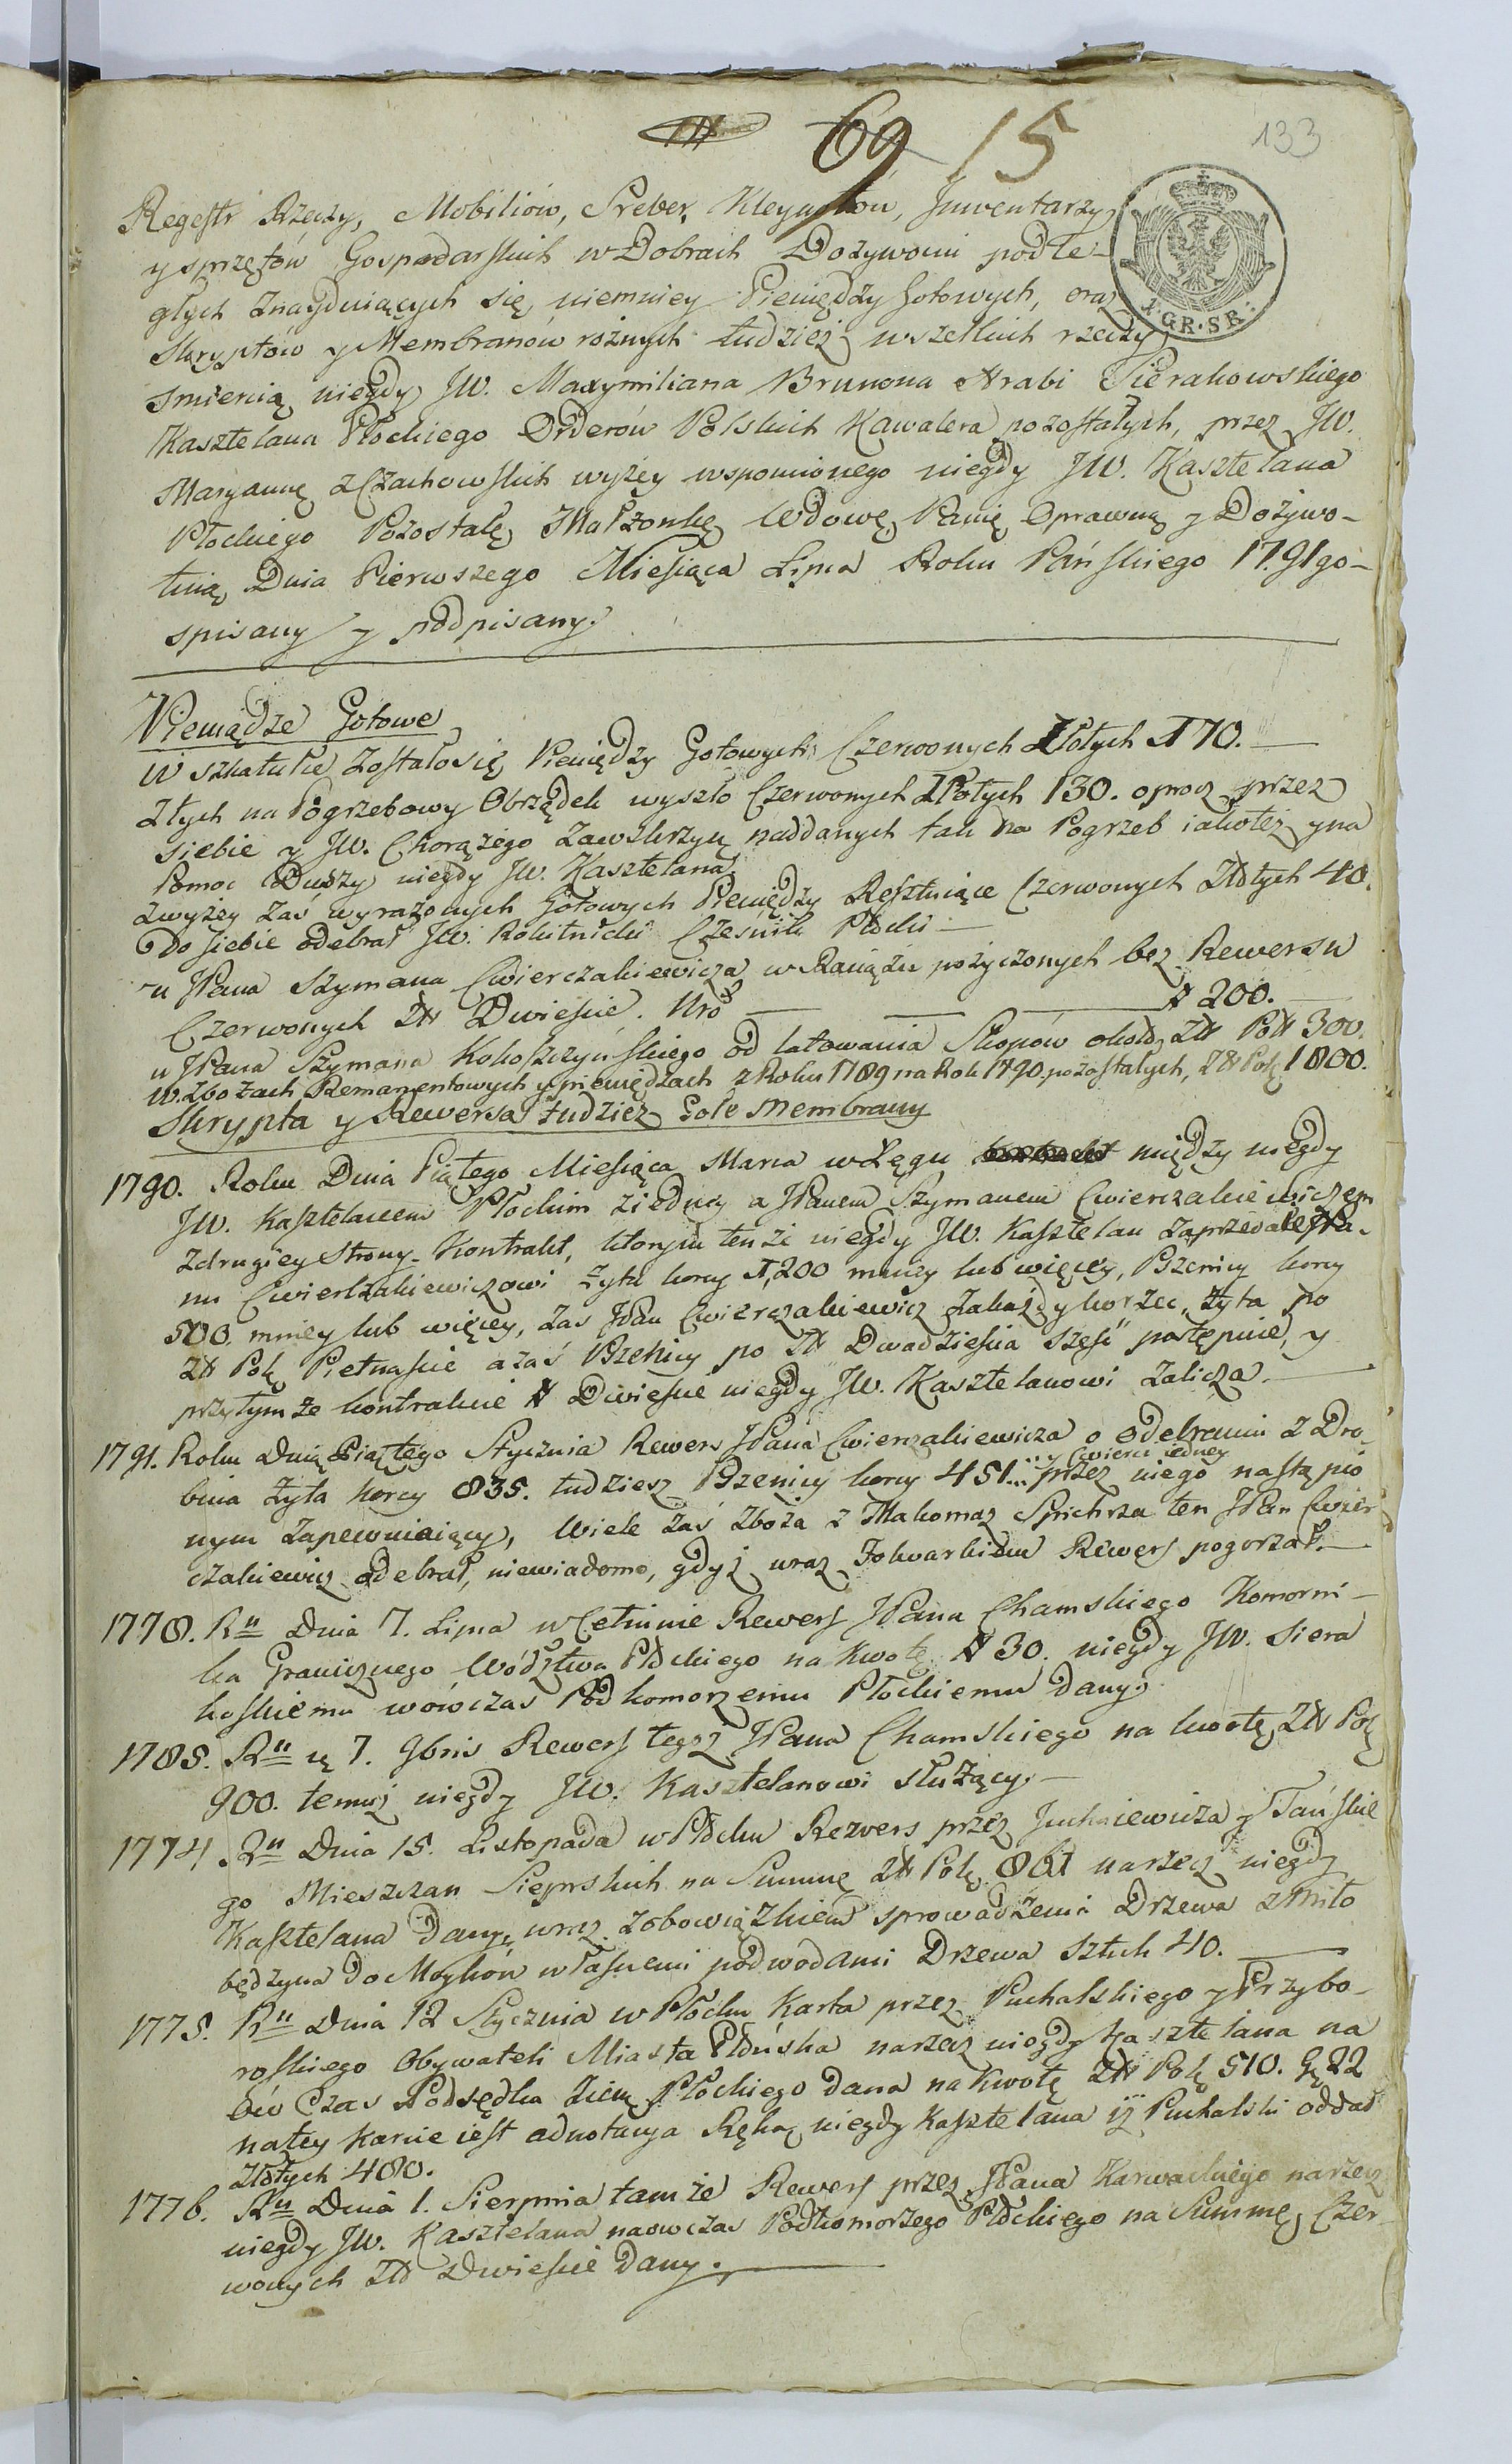 69 15 133
Regestr Rzeczy, Mobiliów, Sreber, Kleynotów, Inwentarzy
y sprzętów Gospodarskich w Dobrach Dożywociu podle-
głych znayduiących się, niemniey Pieniędzy Gotowych, oraz
Skryptów y Membranów rożnych tudzież wszelkich rzeczy
Smiercią niegdy JW. Maxymiliana Brunona Hrabi Sierakowskiego
Kasztelana Płockiego Orderów Polskich Kawalera pozostałych, przez JW.
Maryannę z Czachowskich wyżey wspomionego niegdy JW. Kasztelana
Płockiego Pozostałę Małżonkę Wdowę, Panię Oprawną y Dożywo-
tnią, Dnia Pierwszego Miesiąca Lipca Roku Pańskiego 1791go-
spisany y podpisany.
1.GR.SR.
Pieniądze Gotowe
W szkatule zostało się Pieniędzy Gotowych Czerwonych Złotych 170.
Z tych na Pogrzebowy Obrządek wyszło Czerwonych Złotych 130. oprocz przez
siebie y JW. Chorążego Zawskrzyń naddanych tak na Pogrzeb iakoteż y na
Pomoc Duszy niegdy JW. Kasztelana.
Zwyżey zaś wyrażonych Gotowych Pieniędzy Resztuiące Czerwonych Złotych 40.
Do siebie odebrał JW. Rokitnicki Cześnik Płocki
u JPana Szymana Cwierczakiewicza w Raciążu pożyczonych bez Rewersu
Czerwonych Zł Dwieście. Nro # 200.
u JPana Szymana Kokoszczyńskiego od latowania Skopów około Zł Pol 300.
W Zbożach Remanentowych y pieniędzach z Roku 1789 na Rok 1790 pozostałych, Zł Pol 1800.
Skrypta y Rewersa tudzież Gołe Membrany
1790. Roku Dnia Piątego Miesiąca Marca w Łęgu między niegdy
JW. Kasztelanem Płockim z iedney a JPanem Szymanem Cwierczakiewiczem
z drugiey Strony Kontrakt, ktorym tenże niegdy JW. Kasztelan zaprzedał JPa-
nu Cwierczakiewiczowi Żyta korcy 1,200 mniey lub więcey, Pszenicy korcy
500. mniey lub więcey, zas JPan Cwierczakiewicz za każdy korzec Żyta po
Zł Pol Pietnaście a zaś Pszenicy po Zł Dwadzieścia sześć postępuie, y
przytymże kontrakcie # Dwieście niegdy JW. Kasztelanowi zalicza.
1791. Roku Dnia Piątego Stycznia Rewers JPana Cwierczakiewicza o odebraniu z Dro-
y Cwierci iedney
bina Żyta korcy 835. tudziesz Pszenicy korcy 451... przez niego nastąpio
nym zapewniaiący, Wiele zaś Zboża z Makomaz Spichrza ten JPan Cwier
czakiewicz odebrał, niewiadomo, gdyż wraz z Folwarkiem Rewers pogorzał.
1778. Ru Dnia 7. Lipca w Cetlinie Rewers JPana Chamskiego Komorni-
ka Granicznego Wództwa Płckiego na Kwotę # 30. niegdy JW. Siera
koskiemu wówczas Podkomorzemu Płockiemu dany.
1785. Ru 7. 9bris Rewers tegoż JPana Chamskiego na kwotę Zł Pol
900. temuż niegdy JW. Kasztelanowi służący.
1774. Ru Dnia 15. Listopada w Płcku Rewers przez Juchniewicza y Tańskie
go Mieszczan Sieprskich na Summę Zł Pol 861 narzecz niegdy
Kasztelana dany, wraz z obowiązkiem sprowadzenia Drzewa z Miło
będzyna do Moykow własnemi podwodami Drzewa Sztuk 40.
1775. Ru Dnia 12 Stycznia w Płocku Karta przez Puchalskiego y Przybo-
roskiego Obywateli Miasta Płońska narzecz niegdy Kasztelana na
ów Czas Podsędka Ziem. Płockiego dana na Kwotę Zł Pol 510. g 22
na tey Karcie iest adnotacya Ręką niegdy Kasztelana iż Puchalski oddał
Złotych 480.
1776. Ru Dnia 1. Sierpnia tamże Rewers przez JPana Karwackiego narzecz
niegdy JW. Kasztelana naowczas Podkomorzego Płckiego na Summę Czer-
wonych Zł Dwieście dany.